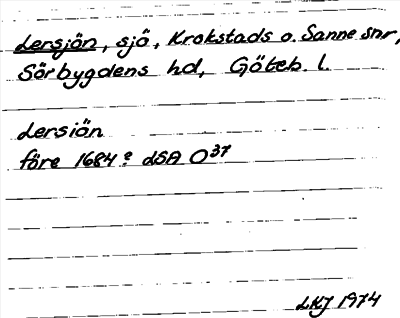 Lersjön, sjö, Krokstads o. Sanne snr,
Sörbygdens hd, Göteb. l.
Lersiön
före 1684? LSA O37
LKJ 1974